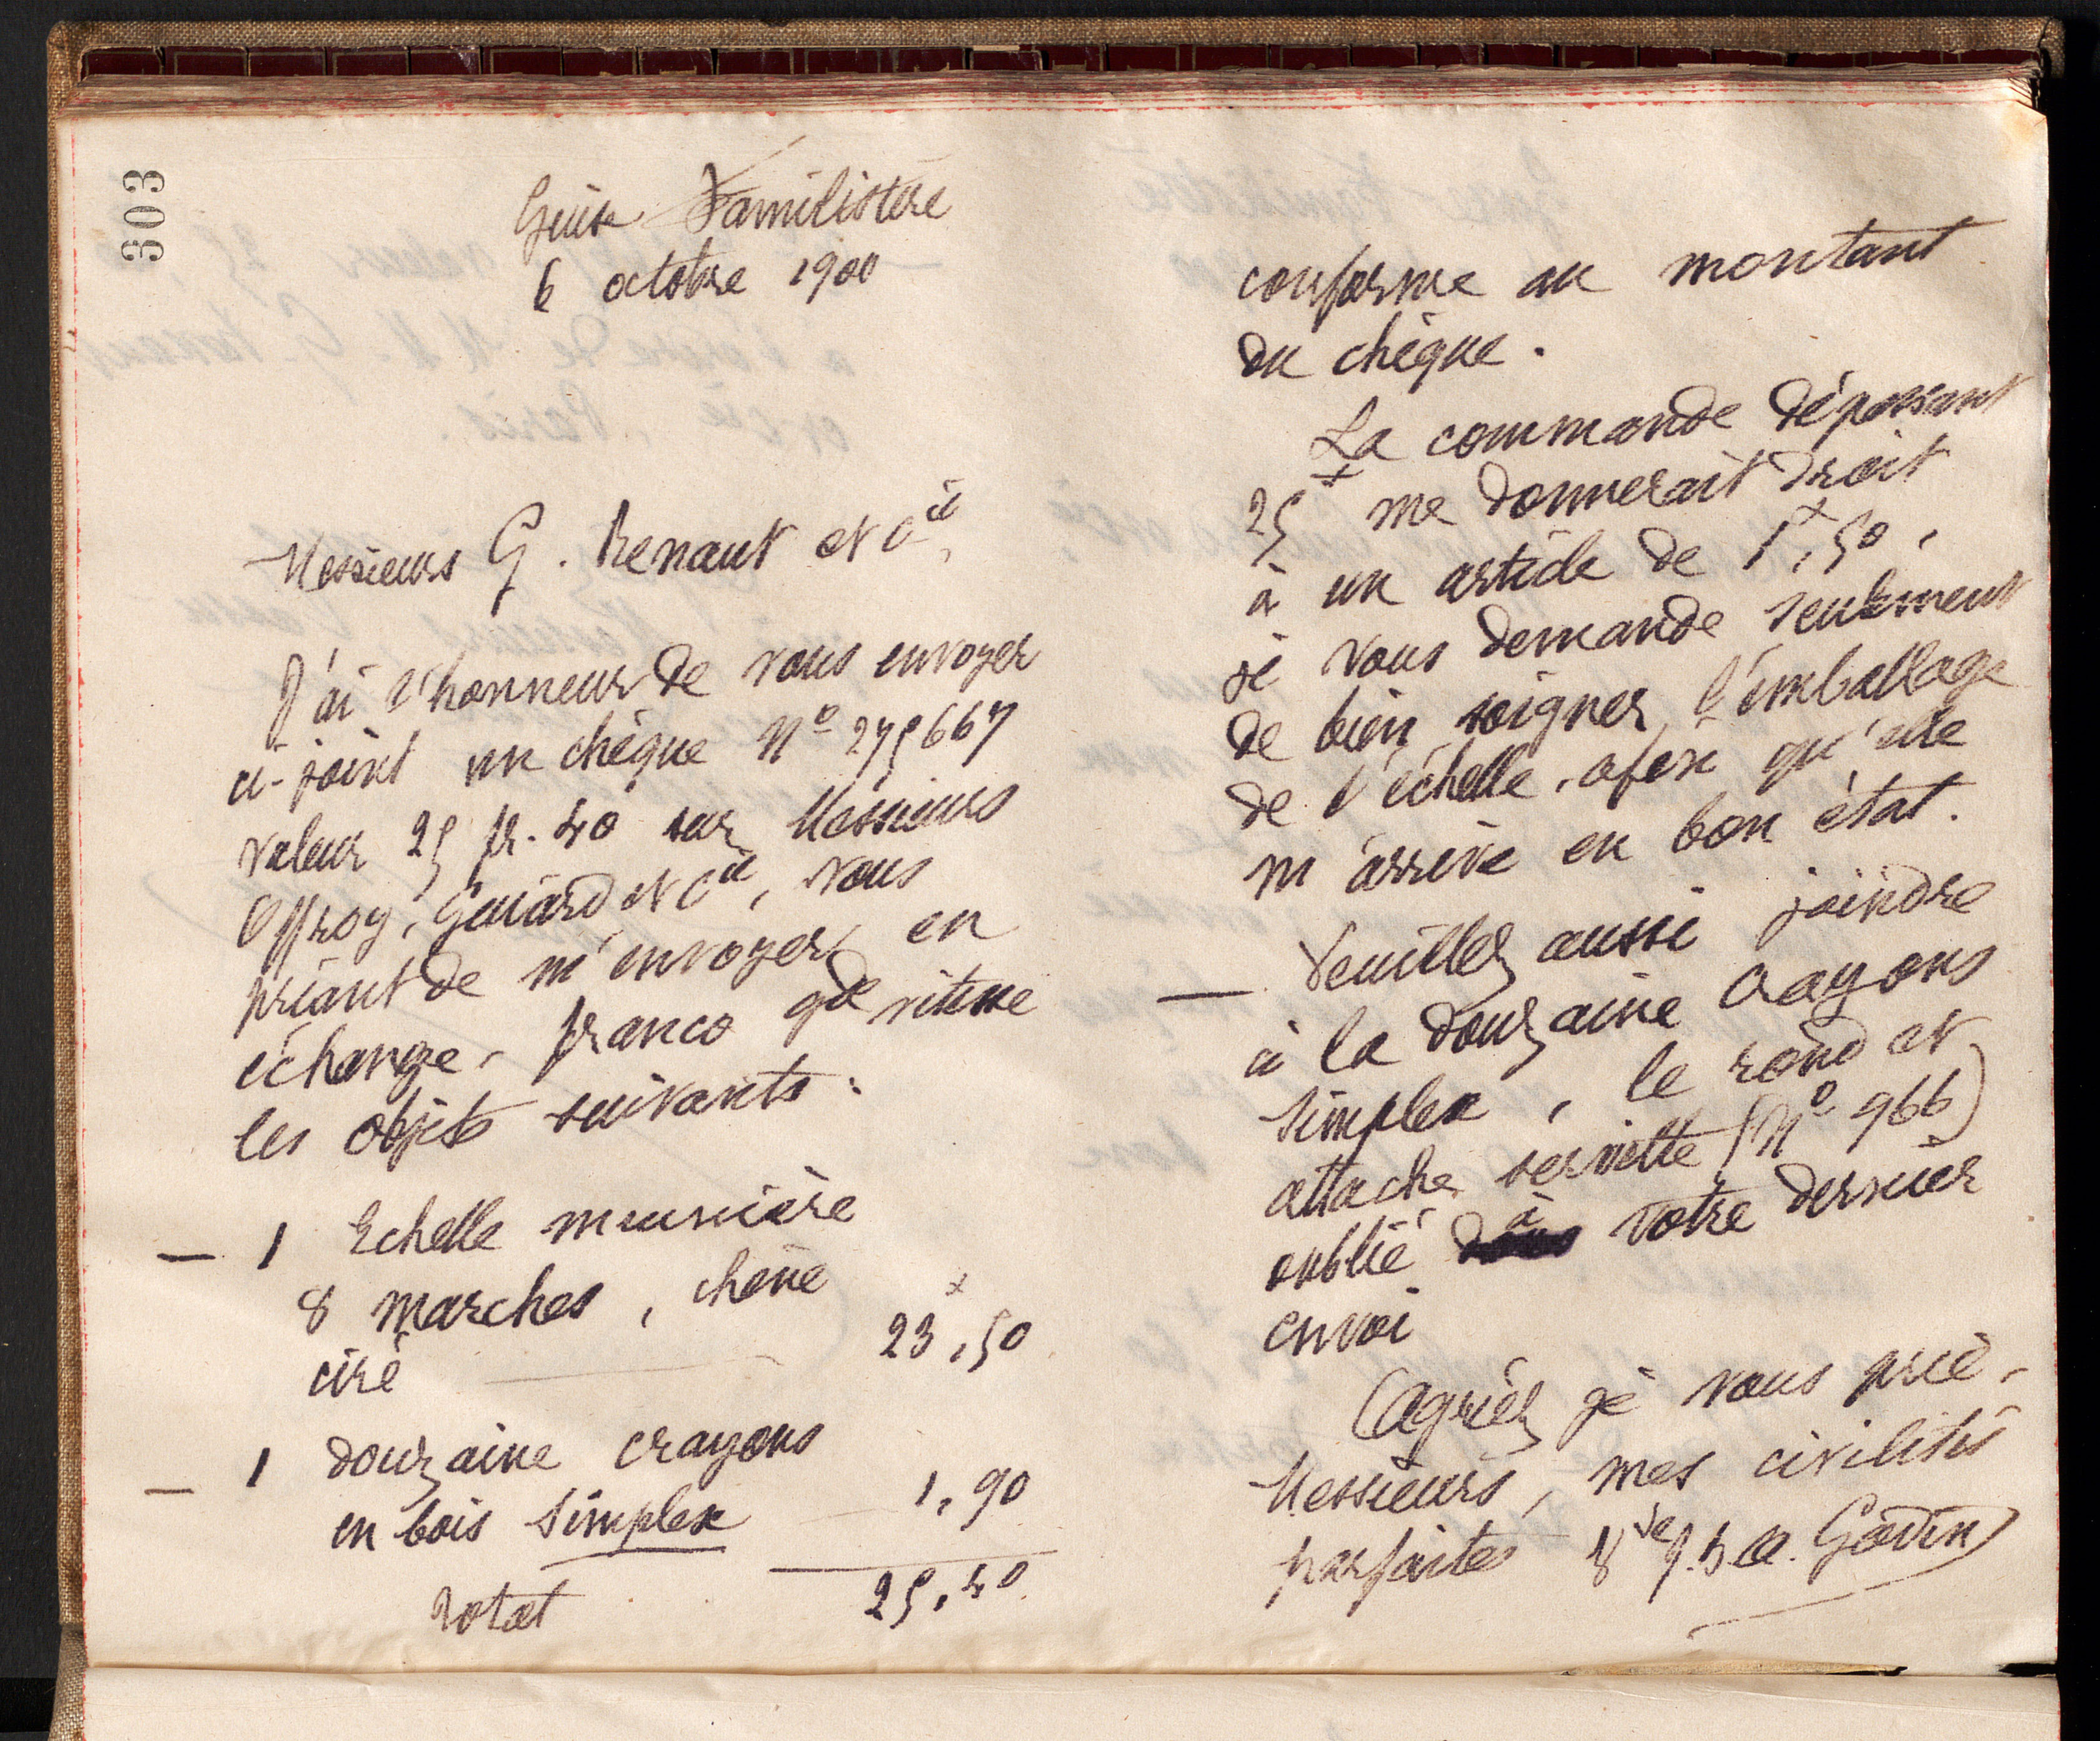 303
Guise Familistère
6 octobre 1900
Messieurs G. Renaut et Cie,
J'ai l'honneur de vous envoyer
ci-joint un chèque N° 275667
valeur 25 fr. 40 sur Messieurs
Offroy, Guiard et Cie, vous
priant de m'envoyer, en
échange, franco gde vitesse
les objets suivants :
— 1 Echelle meunière
8 marches, chêne
ciré 23f,50
— 1 douzaine crayons
en bois Simplex 1,90
Total 25,40
conforme au montant
du chèque.
La commande dépassant
25f me donnerait droit
à un article de 1f,50,
je vous demande seulement
de bien soigner l'emballage
de l'échelle, afin qu'elle
m'arrive en bon état.
— Veuillez aussi joindre
à la douzaine crayons
Simplex, le rond et
attache serviette (N° 966)
oublié dans à votre dernier
envoi
Agréez, je vous prie,
Messieurs, mes civilités
parfaites Vve J. B. A. Godin